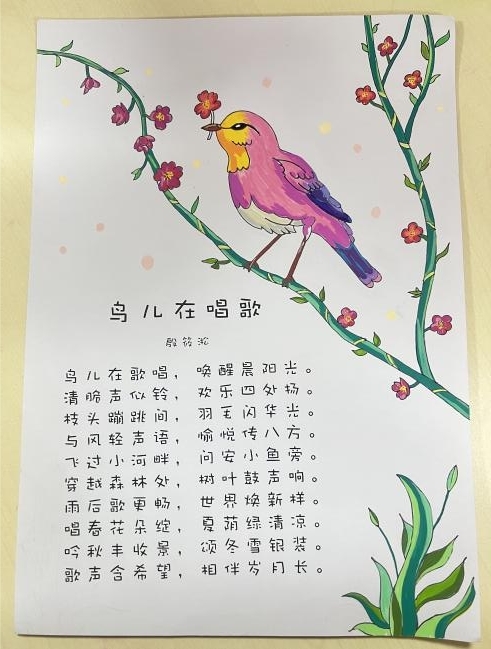 鸟儿在唱歌
殷筱淞
鸟儿在歌唱，唤醒晨阳光。
清脆声似铃，欢乐四处扬。
枝头蹦跳间，羽毛闪华光。
与风轻声语，愉悦传八方。
飞过小河畔，问安小鱼旁。
穿越森林处，树叶鼓声响。
雨后歌更畅，世界焕新样。
唱春花朵绽，夏荫绿清凉。
吟秋丰收景，颂冬雪银装。
歌声含希望，相伴岁月长。